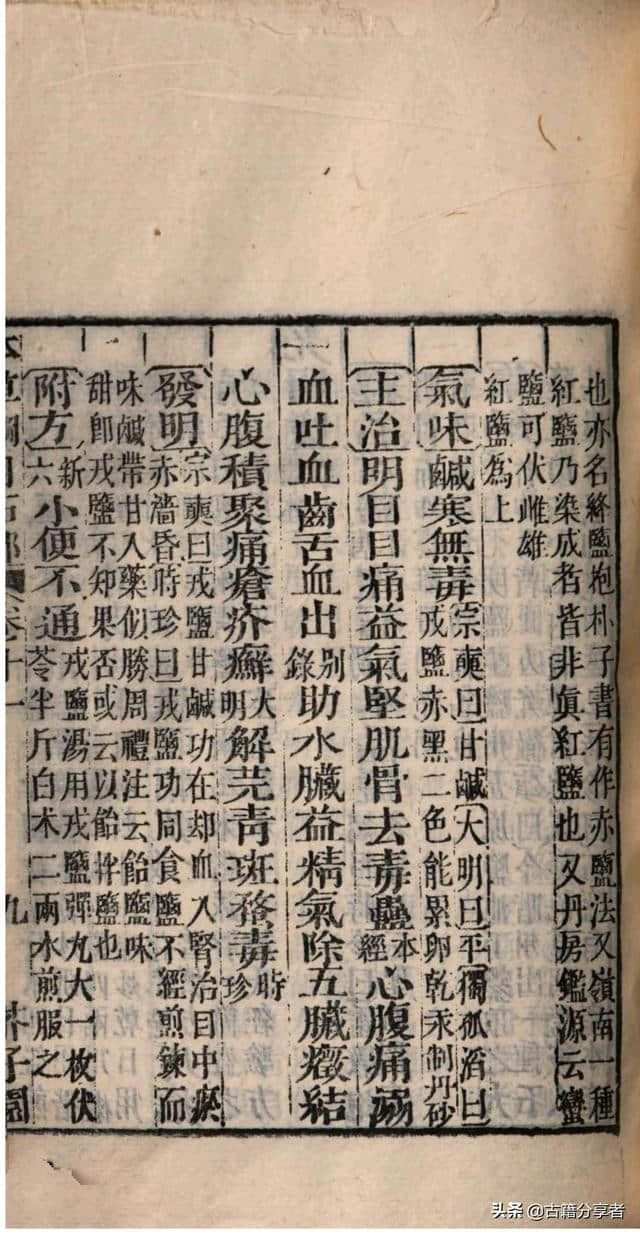 也亦名絳鹽抱朴子書有作赤鹽法又嶺南一種
紅鹽乃染成者皆非眞紅鹽也又丹房鑑源云蠻
鹽可伏雌雄
紅鹽為上
氣味鹹寒無毒宗奭曰甘鹹大明曰平獨孤滔曰
戎鹽赤黑二色能累卵乾汞制丹砂
主治明目目痛益氣堅肌骨去毒蠱本經心腹痛溺
血吐血齒舌血出別錄助水臟益精氣除五臟癥結
心腹積聚痛瘡疥癬大明解芫靑斑蝥毒時珍
發明宗奭曰戎鹽甘鹹功在却血入腎治目中瘀
赤濇昏時珍曰戎鹽功同食鹽不經煎鍊而
味鹹帶甘入藥似勝周禮注云飴鹽味
甜卽戎鹽不知果否或云以飴拌鹽也
附方新六小便不通戎鹽湯用戎鹽彈丸大一枚伏
苓半斤白朮二兩水煎服之
本草綱目石部 卷十一 九 芥子園
头条 @古籍分享者